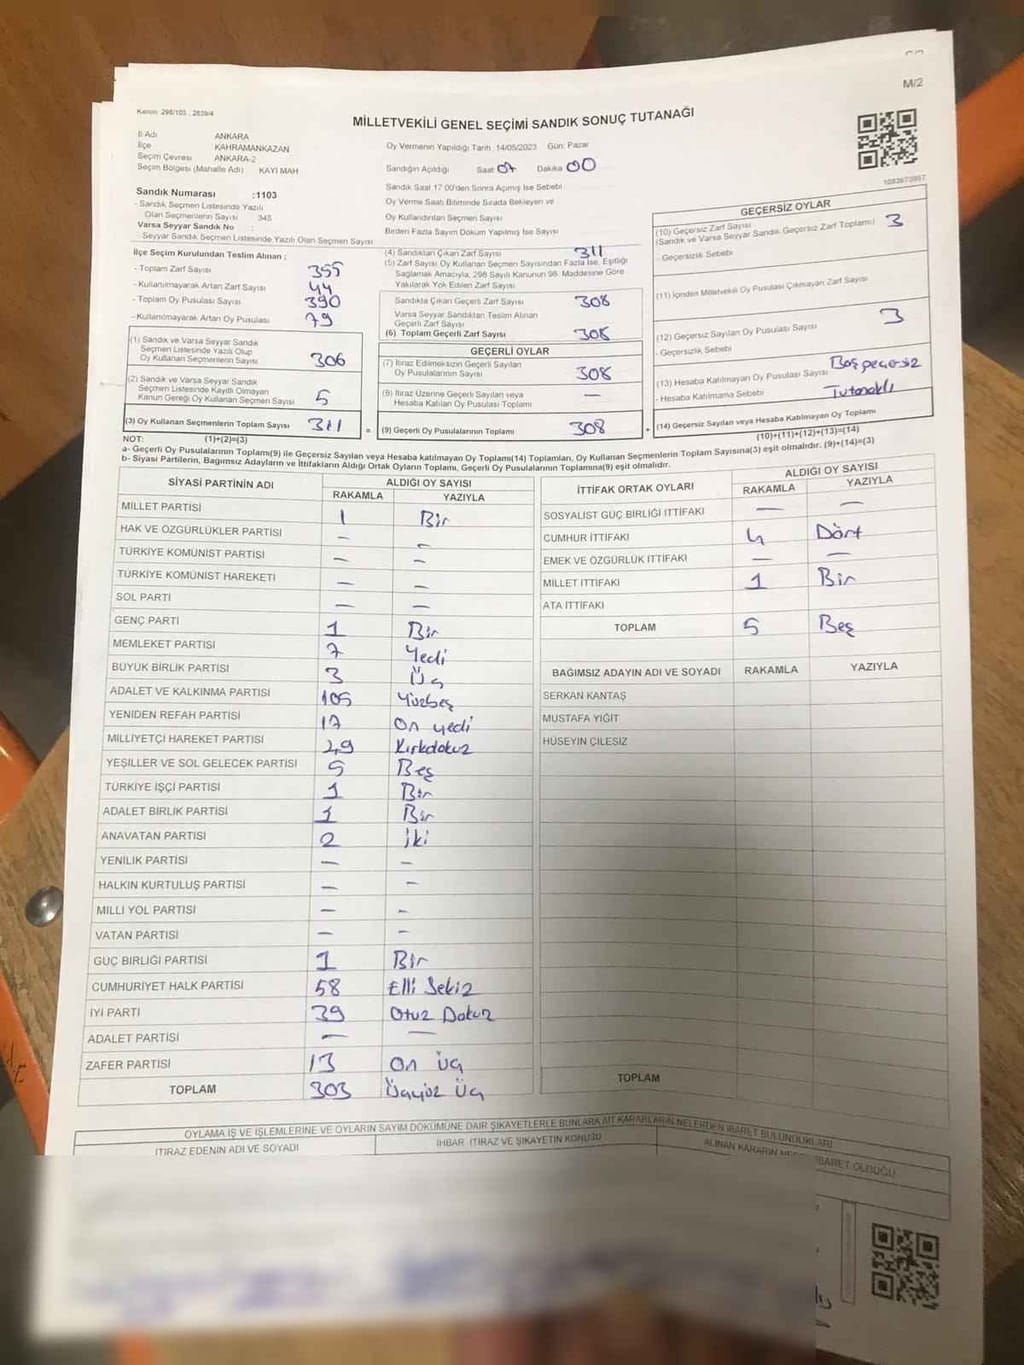 M/2
Kanun: 298/105 , 2839/4
MİLLETVEKİLİ GENEL SEÇİMİ SANDIK SONUÇ TUTANAĞI
İl Adı ANKARA
İlçe KAHRAMANKAZAN
Seçim Çevresi ANKARA-2
Seçim Bölgesi (Mahalle Adı) KAYI MAH
Sandık Numarası :1103
- Sandık Seçmen Listesinde Yazılı
Olan Seçmenlerin Sayısı 345
Varsa Seyyar Sandık No :
Seyyar Sandık Seçmen Listesinde Yazılı Olan Seçmen Sayısı
Oy Vermenin Yapıldığı Tarih 14/05/2023 Gün: Pazar
Sandığın Açıldığı Saat 07 Dakika 00
Sandık Saat 17:00'den Sonra Açımış İse Sebebi
Oy Verme Saati Bitiminde Sırada Bekleyen ve
Oy Kullandırılan Seçmen Sayısı
Birden Fazla Sayım Döküm Yapılmış İse Sayısı
1083673987
İlçe Seçim Kurulundan Teslim Alınan ;
- Toplam Zarf Sayısı 355
- Kullanılmayarak Artan Zarf Sayısı 44
- Toplam Oy Pusulası Sayısı 390
- Kullanılmayarak Artan Oy Pusulası 79
(1) Sandık ve Varsa Seyyar Sandık
Seçmen Listesinde Yazılı Olup
Oy Kullanan Seçmenlerin Sayısı 306
(2) Sandık ve Varsa Seyyar Sandık
Seçmen Listesinde Kayıtlı Olmayan
Kanun Gereği Oy Kullanan Seçmen Sayısı 5
(3) Oy Kullanan Seçmenlerin Toplam Sayısı 311
(4) Sandıktan Çıkan Zarf Sayısı 311
(5) Zarf Sayısı Oy Kullanan Seçmen Sayısından Fazla İse, Eşitliği
Sağlamak Amacıyla, 298 Sayılı Kanunun 98. Maddesine Göre
Yakılarak Yok Edilen Zarf Sayısı
Sandıkta Çıkan Geçerli Zarf Sayısı 308
Varsa Seyyar Sandıktan Teslim Alınan
Geçerli Zarf Sayısı
(6) Toplam Geçerli Zarf Sayısı 308
GEÇERLİ OYLAR
(7) İtiraz Edilmeksizin Geçerli Sayılan
Oy Pusulalarının Sayısı 308
(8) İtiraz Üzerine Geçerli Sayılan ve
Hesaba Katılan Oy Pusulası Toplamı —
= (9) Geçerli Oy Pusulalarının Toplamı 308
GEÇERSİZ OYLAR
(10) Geçersiz Zarf Sayısı 3
(Sandık ve Varsa Seyyar Sandık Geçersiz Zarf Toplamı)
- Geçersizlik Sebebi
(11) İçinden Milletvekili Oy Pusulası Çıkmayan Zarf Sayısı
(12) Geçersiz Sayılan Oy Pusulası Sayısı 3
- Geçersizlik Sebebi
(13) Hesaba Katılmayan Oy Pusulası Sayısı
- Hesaba Katılmama Sebebi Tutanaklı
+ (14) Geçersiz Sayılan veya Hesaba Katılmayan Oy Toplamı
(10)+(11)+(12)+(13)=(14)
NOT: (1)+(2)=(3)
a- Geçerli Oy Pusulasının Toplamı(9) ile Geçersiz Sayılan veya Hesaba katılmayan Oy Toplamı(14) Toplamları, Oy Kullanan Seçmenlerin Toplam Sayısına(3) eşit olmalıdır. (9)+(14)=(3)
b- Siyasi Partilerin, Bağımsız Adayların ve İttifakların Aldığı Ortak Oyların Toplamı, Geçerli Oy Pusulalarının Toplamına(9) eşit olmalıdır.
SİYASİ PARTİNİN ADI ALDIĞI OY SAYISI
RAKAMLA YAZIYLA
MİLLET PARTİSİ 1 Bir
HAK VE ÖZGÜRLÜKLER PARTİSİ — —
TÜRKİYE KOMÜNİST PARTİSİ — —
TÜRKİYE KOMÜNİST HAREKETİ — —
SOL PARTİ — —
GENÇ PARTİ 1 Bir
MEMLEKET PARTİSİ 7 Yedi
BÜYÜK BİRLİK PARTİSİ 3 Üç
ADALET VE KALKINMA PARTİSİ 105 Yüzbeş
YENİDEN REFAH PARTİSİ 17 On yedi
MİLLİYETÇİ HAREKET PARTİSİ 49 Kırkdokuz
YEŞİLLER VE SOL GELECEK PARTİSİ 5 Beş
TÜRKİYE İŞÇİ PARTİSİ 1 Bir
ADALET BİRLİK PARTİSİ 1 Bir
ANAVATAN PARTİSİ 2 İki
YENİLİK PARTİSİ — —
HALKIN KURTULUŞ PARTİSİ — —
MİLLİ YOL PARTİSİ — —
VATAN PARTİSİ — —
GÜÇ BİRLİĞİ PARTİSİ 1 Bir
CUMHURİYET HALK PARTİSİ 58 Elli Sekiz
İYİ PARTİ 39 Otuz Dokuz
ADALET PARTİSİ — —
ZAFER PARTİSİ 13 On Üç
TOPLAM 303 Üçyüz Üç
İTTİFAK ORTAK OYLARI ALDIĞI OY SAYISI
RAKAMLA YAZIYLA
SOSYALİST GÜÇ BİRLİĞİ İTTİFAKI — —
CUMHUR İTTİFAKI 4 Dört
EMEK VE ÖZGÜRLÜK İTTİFAKI — —
MİLLET İTTİFAKI 1 Bir
ATA İTTİFAKI
TOPLAM 5 Beş
BAĞIMSIZ ADAYIN ADI VE SOYADI RAKAMLA YAZIYLA
SERKAN KANTAŞ
MUSTAFA YİĞİT
HÜSEYİN ÇİLESİZ
TOPLAM
OYLAMA İŞ VE İŞLEMLERİNE VE OYLARIN SAYIM DÖKÜMÜNE DAİR ŞİKAYETLERLE BUNLARA AİT KARARLARIN NELERDEN İBARET BULUNDUKLARI
İTİRAZ EDENİN ADI VE SOYADI
İHBAR, İTİRAZ VE ŞİKAYETİN KONUSU
ALINAN KARARIN İBARET OLDUĞU